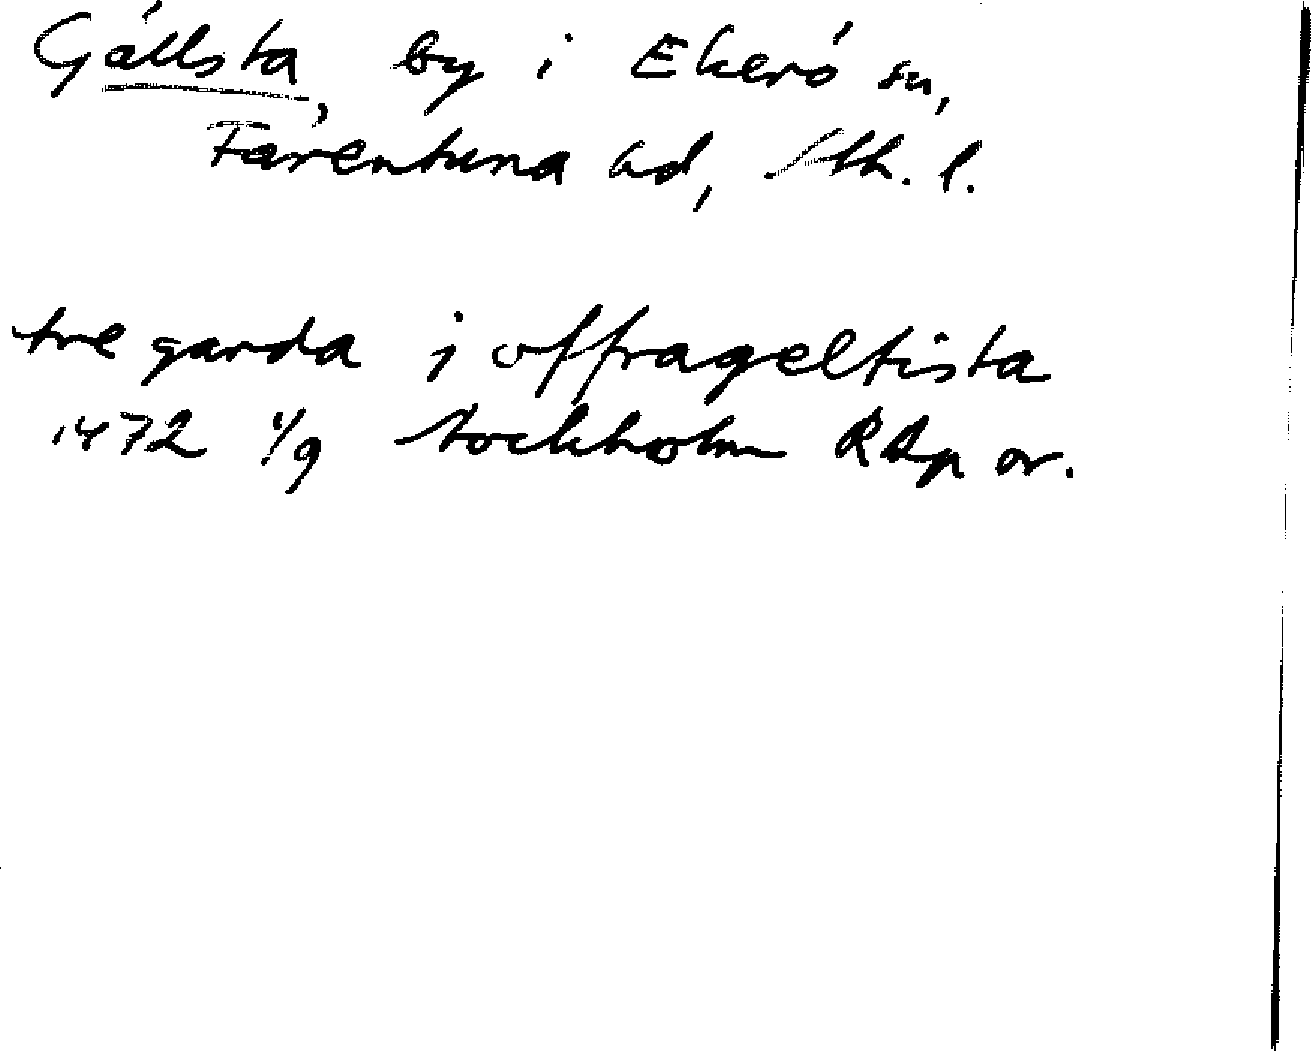 Gällsta, by i Ekerö sn,
Färentuna hd, Sth. l.
tre garda i offrageltista
1472 1/9 Stockholm RAp or.